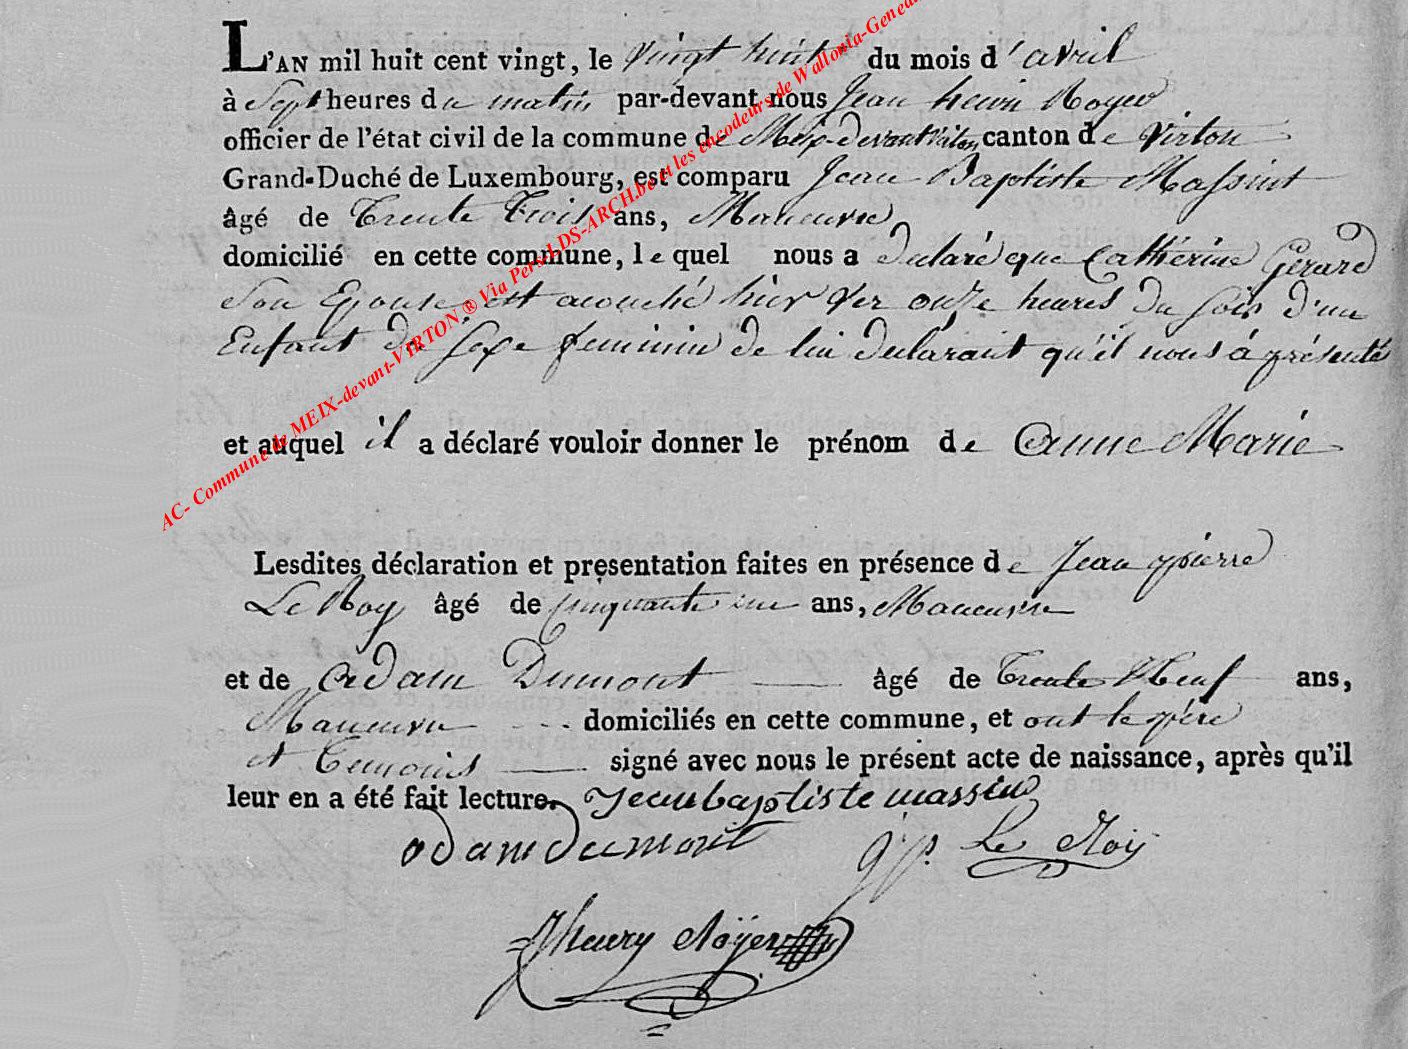 L'AN mil huit cent vingt, le vingt huit du mois d'avril
à Sept heures du matin par-devant nous Jean henri Royer
officier de l'état civil de la commune de Meix-devant Virton canton de Virton
Grand-Duché de Luxembourg, est comparu Jean Baptiste Massint
âgé de Trente Trois ans, Maneuvre
domicilié en cette commune, le quel nous a déclaré que Catherine Gérard
Son Epouse est acouché hier ver onze heures du Soir d'un
Enfant du sexe feminin de lui declarant qu'il nous à présenté
et auquel il a déclaré vouloir donner le prénom de anne Marie
Lesdites déclaration et présentation faites en présence de Jean pierre
Le Roy âgé de Cinquante une ans, Maneuvre
et de adam Dumont âgé de Trente Neuf ans,
Maneuvre domiciliés en cette commune, et ont le père
et Temoins signé avec nous le présent acte de naissance, après qu'il
leur en a été fait lecture. Jean baptiste massin
adam dumont J p. Le Roy
J henry Roÿer
AC- Commune de MEIX-devant-VIRTON ® Via Pers-LDS-ARCH.be et les encodeurs de Wallonia-Genea